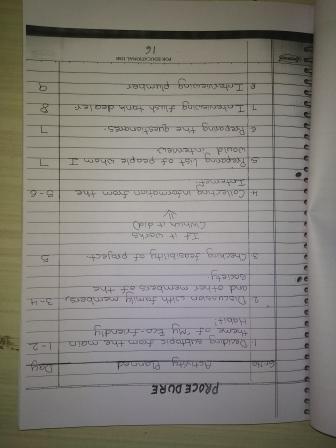 PROCEDURE
Sr.No Activity Planned Day
1. Deciding subtopic from the main 1-2
theme of "My Eco-friendly
Habit".
2. Discussion with family members, 3-4
and other members of the
society
3. Checking feasibility of project 5
If it works
(which it did)
4. Collecting information from the 5-6
Internet
5. Preparing list of people whom I 7
would interview
6. Preparing the questionares. 7
7. Interviewing flush tank dealer 8
8. Interviewing plumber 9
FOR EDUCATIONAL USE
16